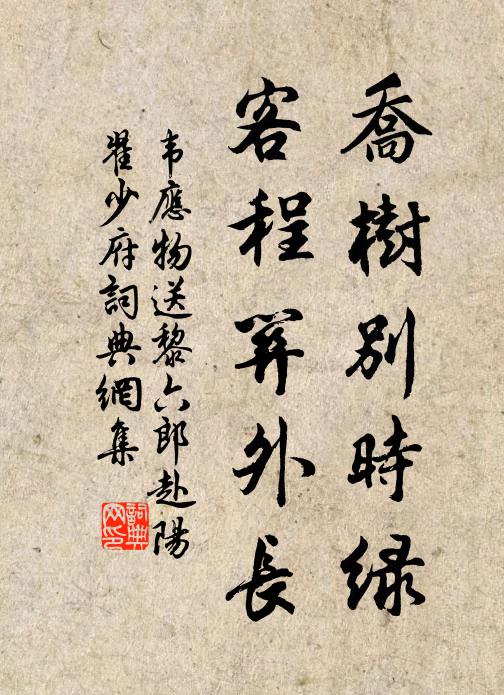 喬樹別時緑
客程關外長
韦應物送黎六郎赴陽
翟少府詞典網集
詞典
网印